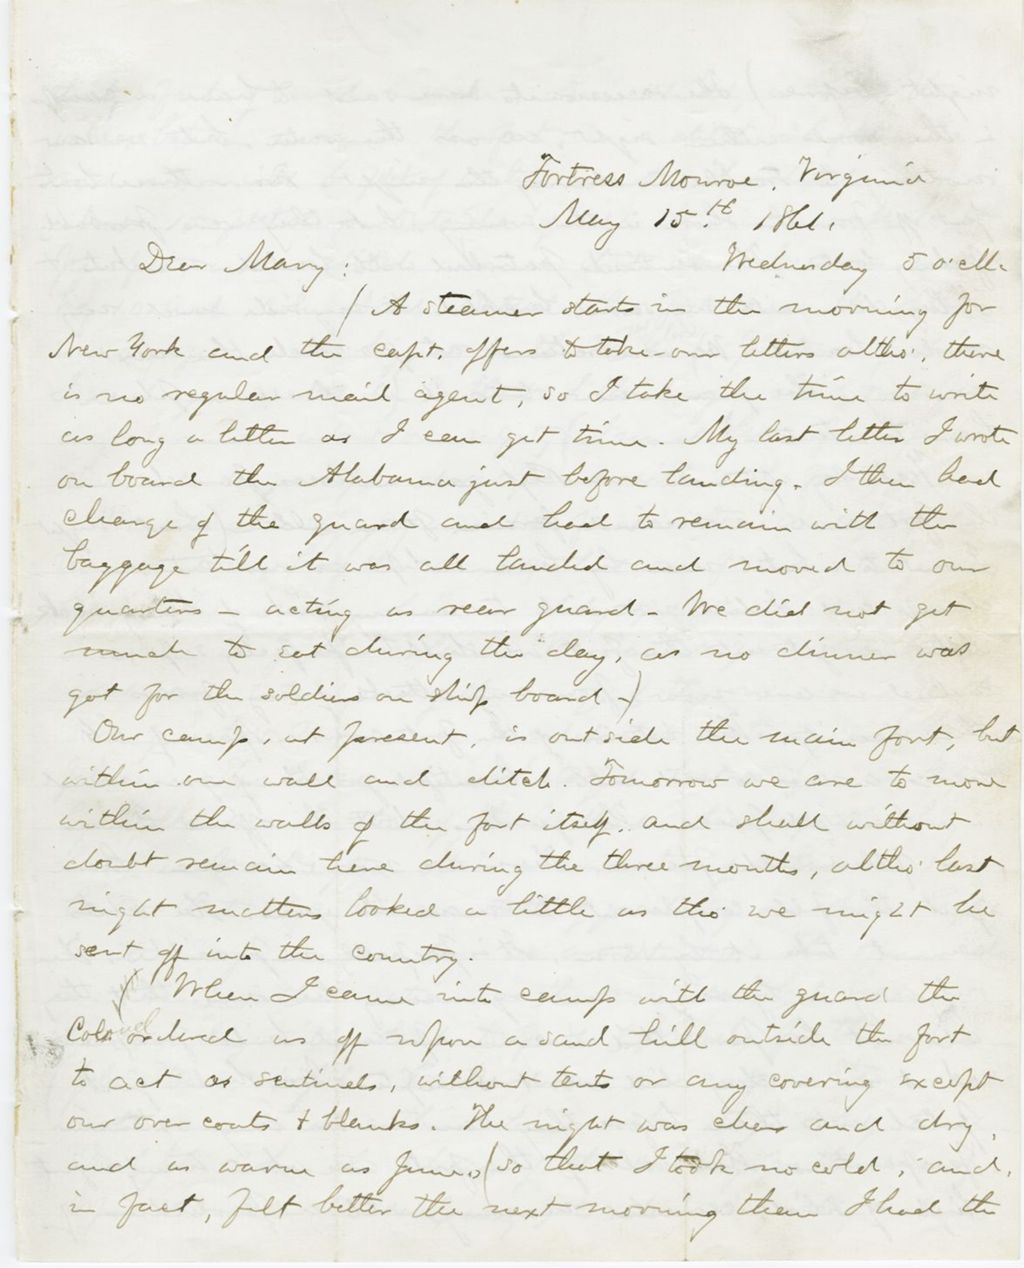 Fortress Monroe, Virginia
May 15.th 1861.
Dear Mary: Wednesday 5 o'clk
( A steamer starts in the morning for
New York and the capt. offers to take our letters altho', there
is no regular mail agent, so I take the time to write
as long a letter as I can get time. My last letter I wrote
on board the Alabama just before landing. I then had
charge of the guard and had to remain with the
baggage till it was all landed and moved to our
quarters – acting as rear guard – We did not get
much to eat during the day, as no dinner was
got for the soldiers on ship board –)
Our camp, at present, is outside the main fort, but
within one wall and ditch. Tomorrow we are to move
within the walls of the fort itself. and shall without
doubt remain here during the three months, altho' last
night matters looked a little as tho' we might be
sent off into the country.
( When I came into camp with the guard the
Colonel ordered us off upon a sand hill outside the fort
to act as sentinels, without tents or any covering except
our over coats & blanks. The night was clear and dry,
and as warm as June, (so that I took no cold, and,
in fact, felt better the next morning than I had the